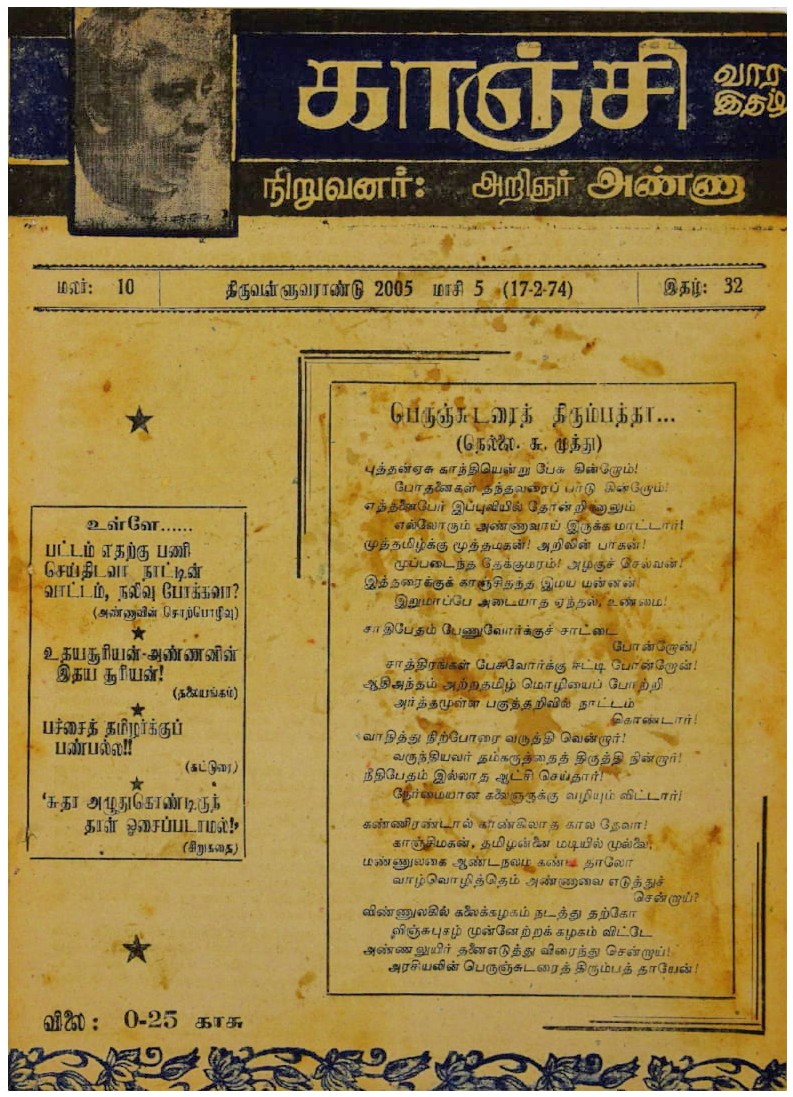 காஞ்சி
வார
இதழ்
நிறுவனர்: அறிஞர் அண்ணா
மலர்: 10
திருவள்ளுவராண்டு 2005 மாசி 5 (17-2-74)
இதழ்: 32
உள்ளே......
பட்டம் எதற்கு பணி
செய்திடவா நாட்டின்
வாட்டம், நலிவு போக்கவா?
(அண்ணாவின் சொற்பொழிவு)
உதயசூரியன்-அண்ணனின்
இதய சூரியன்!
(தலையங்கம்)
பச்சைத் தமிழர்க்குப்
பண்பல்ல!!
(கட்டுரை)
'சுதா அழுதுகொண்டிருந்
தாள் ஓசைப்படாமல்!'
(சிறுகதை)
விலை: 0-25 காசு
பெருஞ்சுடரைத் திரும்பத்தா...
(நெல்லை. சு. முத்து)
புத்தன்ஏசு காந்தியென்று பேசு கின்றோம்!
போதனைகள் தந்தவரைப் பாடு கின்றோம்!
எத்தனைபேர் இப்புவியில் தோன்றினாலும்
எல்லோரும் அண்ணாவாய் இருக்க மாட்டார்!
முத்தமிழ்க்கு முத்தமகன்! அறிவின் பாகன்!
முப்படைந்த தேக்குமரம்! அழகுச் செல்வன்!
இத்தரைக்குக் காஞ்சிதந்த இமய மன்னன்!
இறுமாப்பே அடையாத ஏந்தல், உண்மை!
சாதிபேதம் பேணுவோர்க்குச் சாட்டை
போன்றோன்!
சாத்திரங்கள் பேசுவோர்க்கு ஈட்டி போன்றோன்!
ஆதிஅந்தம் அற்றதமிழ் மொழியைப் போற்றி
அர்த்தமுள்ள பகுத்தறிவில் நாட்டம்
கொண்டார்!
வாதித்து நிற்போரை வருத்தி வென்றார்!
வருந்தியவர் தம்கருத்தைத் திருத்தி நின்றார்!
நீதிபேதம் இல்லாத ஆட்சி செய்தார்!
நேர்மையான கலைஞருக்கு வழியும் விட்டார்!
கண்ணிரண்டால் காண்கிலாத கால தேவா!
காஞ்சிமகன், தமிழன்னை மடியில் முல்லை,
மண்ணுலகை ஆண்டநலம் கண்ட தாலோ
வாழ்வொழித்தெம் அண்ணாவை எடுத்துச்
சென்றாய்?
விண்ணுலகில் கலைக்கழகம் நடத்து தற்கோ
விஞ்சுபுகழ் முன்னேற்றக் கழகம் விட்டே
அண்ணலுயிர் தனைஎடுத்து விரைந்து சென்றாய்!
அரசியலின் பெருஞ்சுடரைத் திரும்பத் தாயேன்!